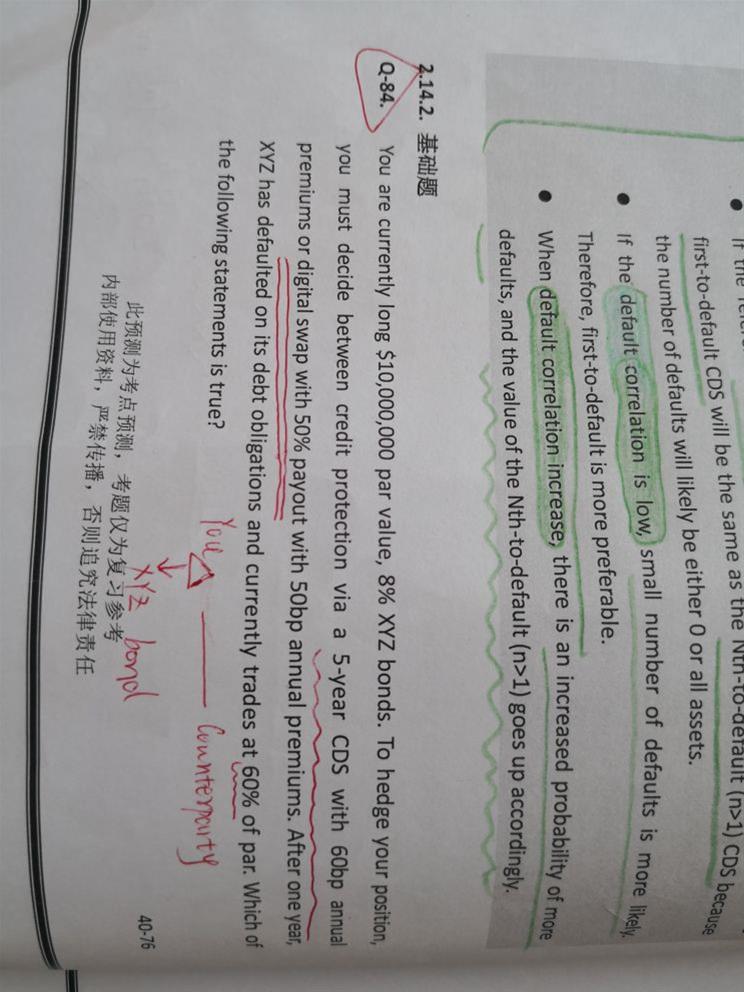 first-to-default CDS will be the same as the Nth-to-default (n>1) CDS because
the number of defaults will likely be either 0 or all assets.
● If the default correlation is low, small number of defaults is more likely.
Therefore, first-to-default is more preferable.
● When default correlation increase, there is an increased probability of more
defaults, and the value of the Nth-to-default (n>1) goes up accordingly.
2.14.2. 基础题
Q-84. You are currently long $10,000,000 par value, 8% XYZ bonds. To hedge your position,
you must decide between credit protection via a 5-year CDS with 60bp annual
premiums or digital swap with 50% payout with 50bp annual premiums. After one year,
XYZ has defaulted on its debt obligations and currently trades at 60% of par. Which of
the following statements is true?
You Counterparty
XYZ bond
此预测为考点预测，考题仅为复习参考
内部使用资料，严禁传播，否则追究法律责任
40-76